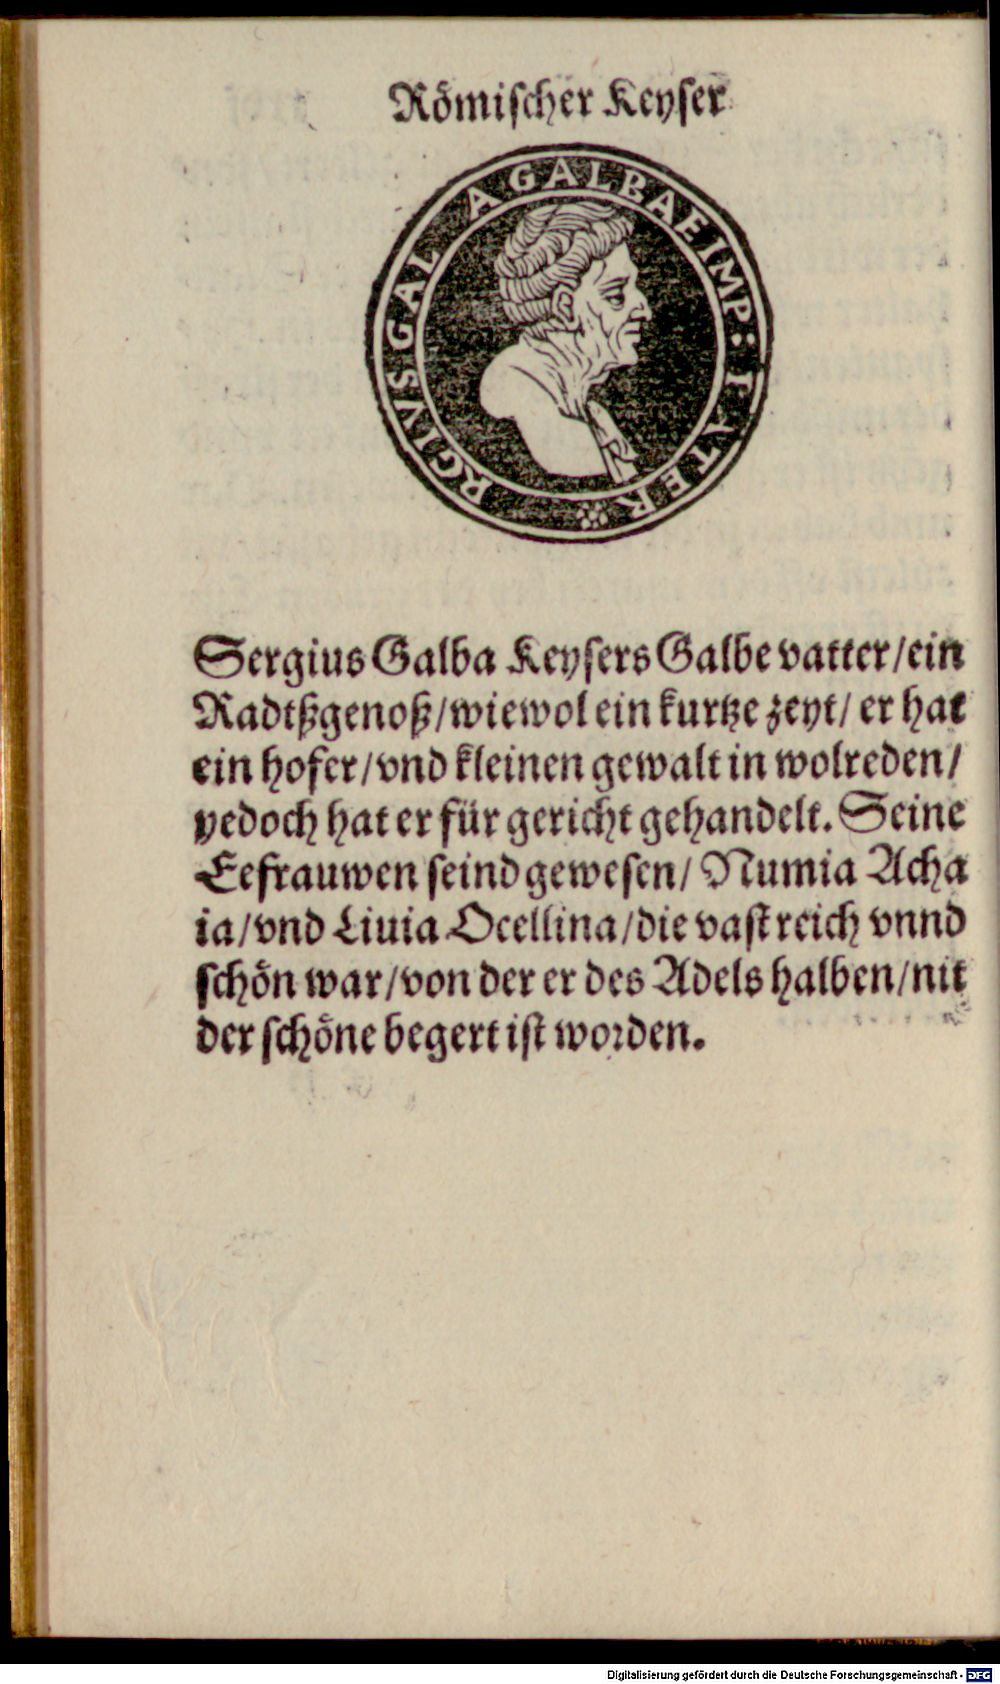 Römischer Keyser
RGIVS GAL A GALBAE IMP: PATER
Sergius Galba Keysers Galbe vatter/ein
Radtßgenoß/wiewol ein kurtze zeyt/ er hat
ein hofer/vnd kleinen gewalt in wolreden/
yedoch hat er für gericht gehandelt. Seine
Eefrauwen seind gewesen/ Numia Acha
ia/vnd Liuia Ocellina/die vast reich vnnd
schön war/von der er des Adels halben/nit
der schöne begert ist worden.
Digitalisierung gefördert durch die Deutsche Forschungsgemeinschaft - DFG